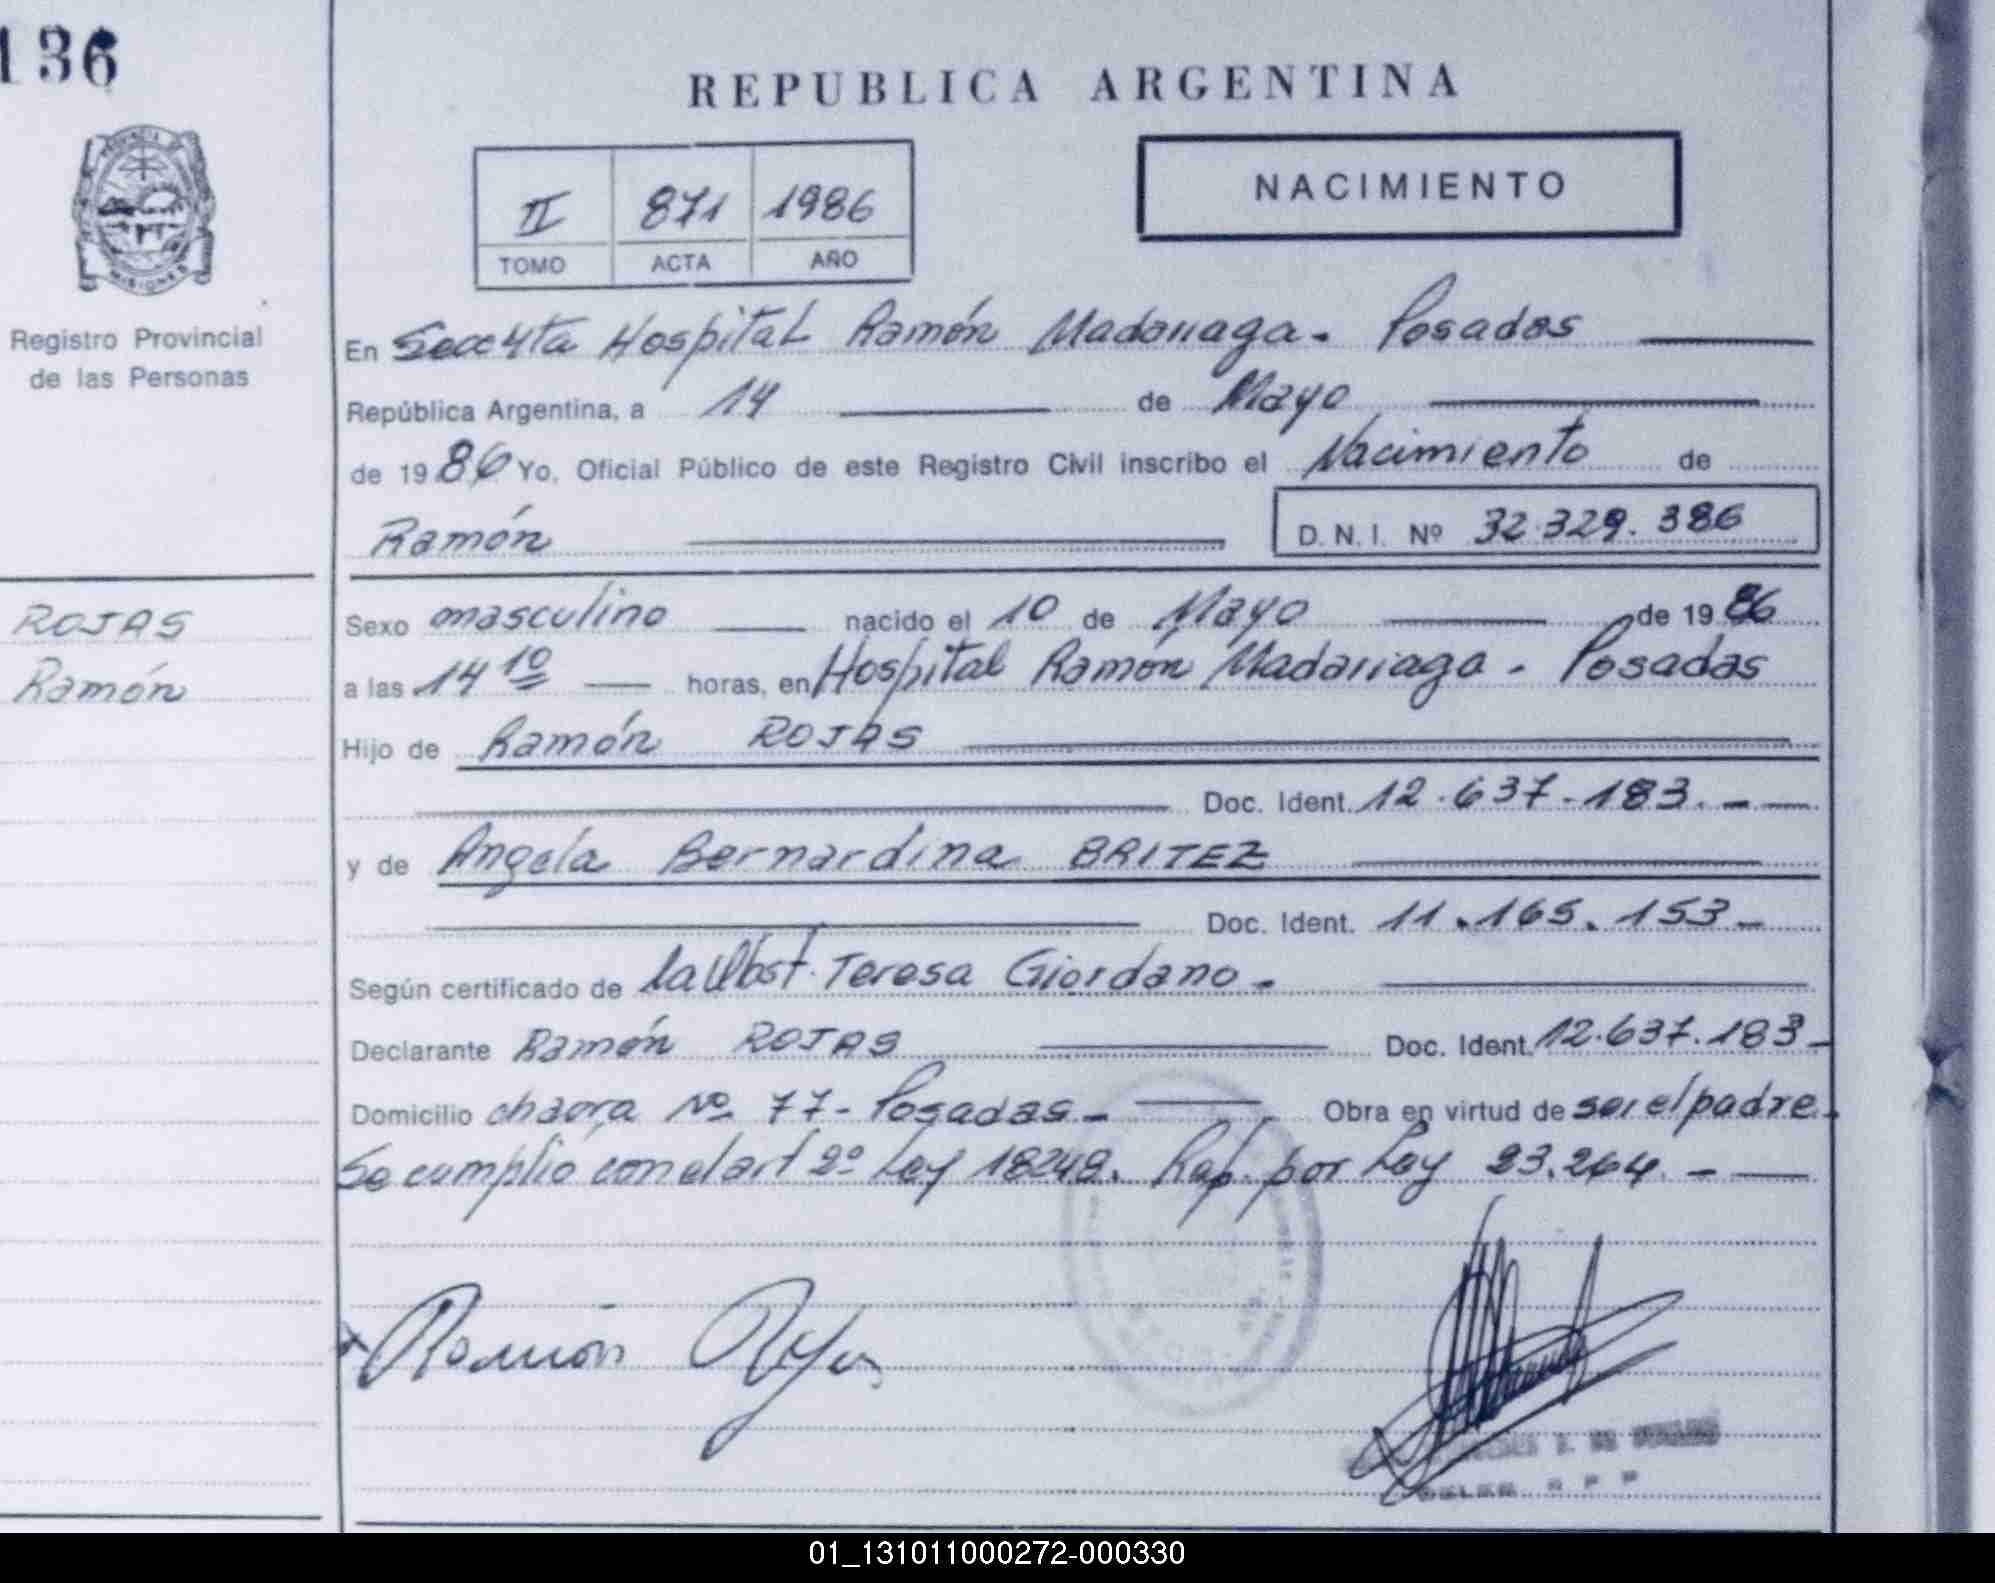 136
REPUBLICA ARGENTINA
II 871 1986
TOMO ACTA AÑO
NACIMIENTO
PROVINCIA DE
MISIONES
Registro Provincial
de las Personas
En Hospital Ramón Madariaga - Posadas
República Argentina, a 14 de Mayo
de 1986 Yo, Oficial Público de este Registro Civil inscribo el Nacimiento de
Ramón D.N.I. Nº 32.329.386
ROJAS
Ramón
Sexo masculino nacido el 10 de Mayo de 1986
a las 14 10 horas, en Hospital Ramón Madariaga - Posadas
Hijo de Ramón ROJAS
Doc. Ident. 12.637.183.-
y de Angela Bernardina BRITEZ
Doc. Ident. 11.165.153-
Según certificado de la Obst. Teresa Giordano-
Declarante Ramón ROJAS Doc. Ident. 12.637.183-
Domicilio chacra Nº 77- Posadas- Obra en virtud de ser el padre.
Se cumplió con el art 2º Ley 18248. Rep. por Ley 23.264.-
Ramón Rojas
01_131011000272-000330